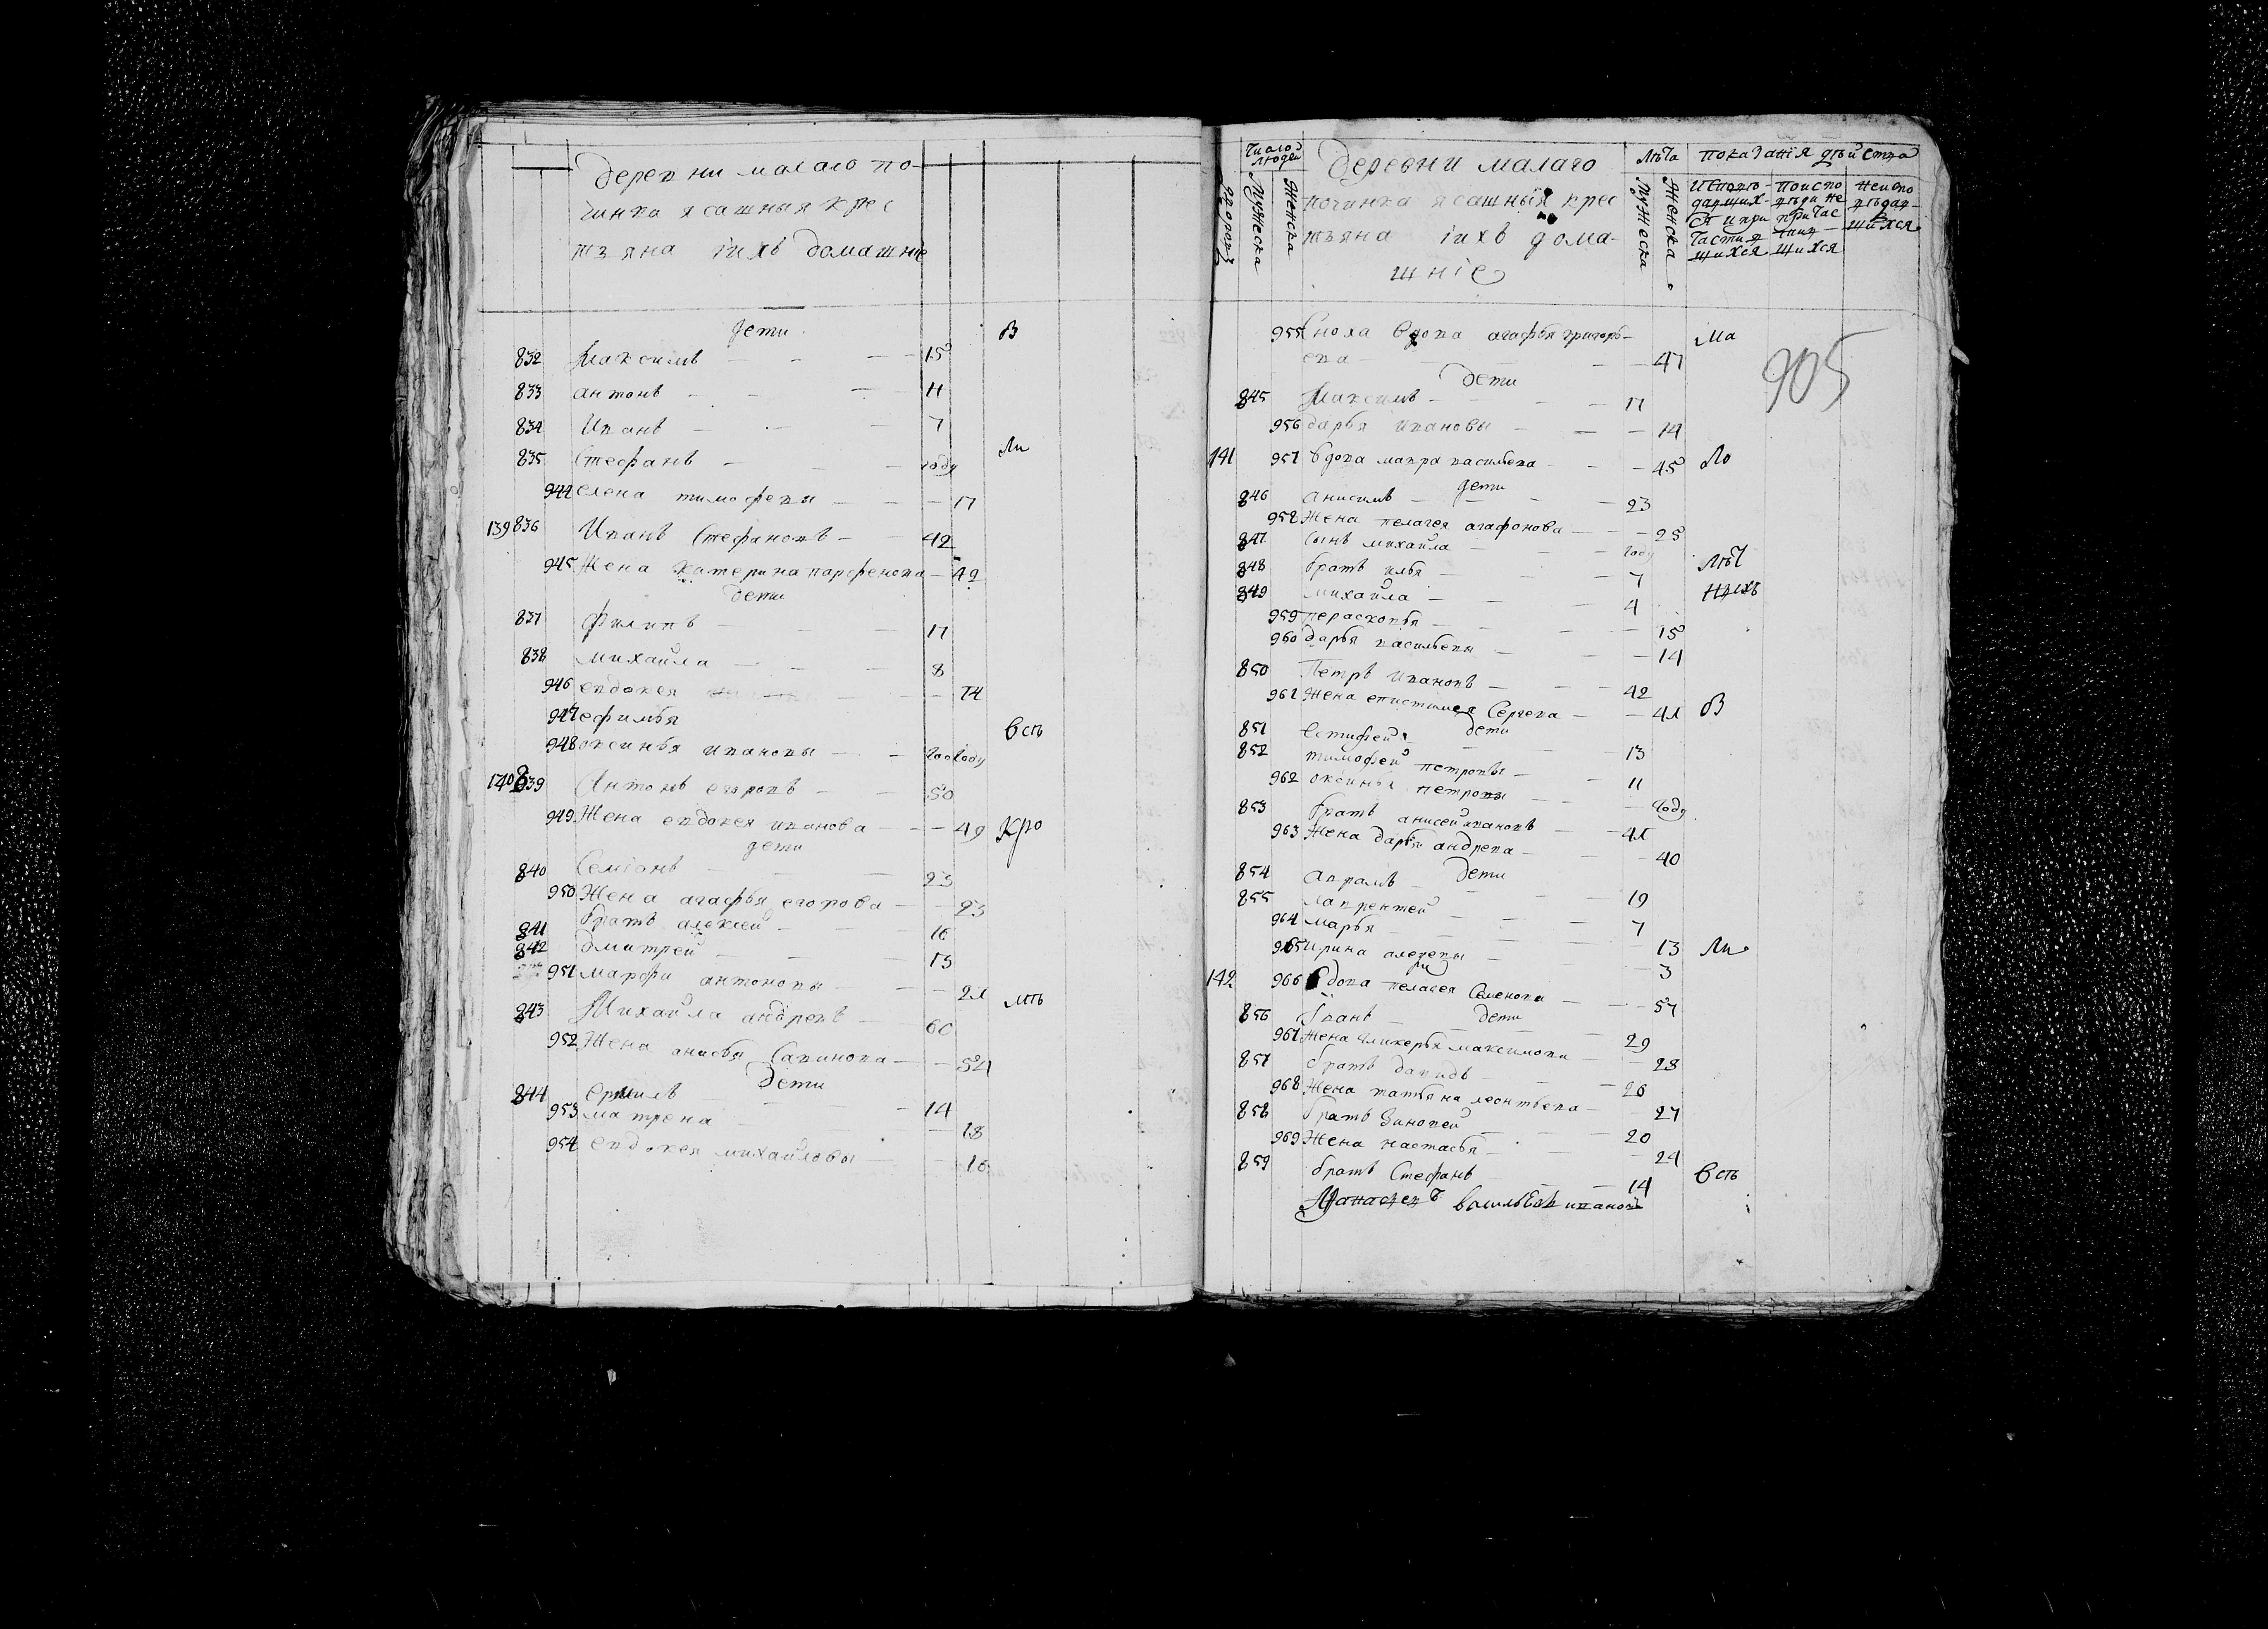 деревни малаго по-
чинка ясашныя крес
тъяна iихъ домашнie
дети
В
832 Максимъ 15
833 антонъ 11
834 Иванъ 7
835 Стефанъ году
Ли
944 елена тимофевы 17
139 836 Иванъ Стефановъ 42
945 Жена катерина парфенова 42
дети
837 филипъ 17
838 михайла 8
946 евдокея 14
947 ефимья
948 оксинья ивановы году
Всть
140 839 Антонъ егоровъ 50
949 Жена евдокея иванова 49
Кро
дети
840 Семiонъ 23
950 Жена агафья егорова 23
841 братъ алексей 16
842 Дмитрей 13
951 марфа антоновы 21
мть
843 Михайла андревъ 60
952 Жена анисья Савинова 54
дети
844 ермилъ 14
953 матрена 18
954 евдокея михайловы 16
число людей
деревни малаго
починка ясашныя крес
тъяна iихъ дома-
шнiе
лѣта
показанiя дѣйства
дворовъ
Мужеска
Женска
Мужеска
Женска
исповѣ-
давших-
ся и при
части в
шихся
поиспо
вѣди не
причас
тив-
шихся
неиспо
вѣдав-
шихся
905
955 Сноха вдова агафья григорь-
ева 47
Ма
дети
845 Максимъ 17
956 дарья ивановы 14
141 957 Вдова мавра васильева 45
Ло
дети
846 анисимъ 23
958 Жена пелагея агафонова 25
847 Сынъ михайла году
848 братъ илья 7
849 михайла 4
959 перасковья 15
960 дарья васильевы 14
850 Петръ ивановъ 42
961 Жена епистимея Сергева 41
В
дети
851 Естифей 13
852 тимофей петровы 11
962 оксинья петровы году
853 братъ анисей ивановъ 41
963 Жена дарья андрева 40
дети
854 аврамъ 19
855 лаврентей 7
964 марья 13
Ли
965 ирина 3
142 966 Вдова пелагея Семенова 57
дети
856 Iванъ 29
967 Жена гликерья максимова 28
857 братъ давидъ 26
968 Жена татьяна леонтьева 27
858 братъ Зиновей 20
969 Жена настасья 24
859 братъ Стефанъ 14
Всть
васильевъ ивановъ